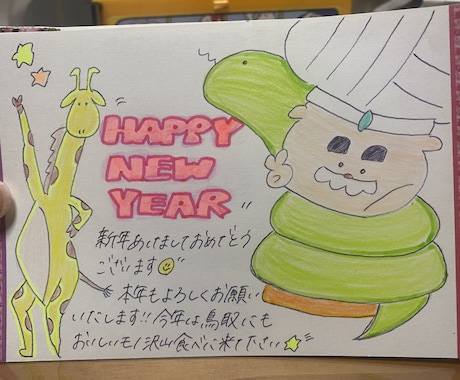 HAPPY
NEW
YEAR
新年あけましておめでとう
ございます
本年もよろしくお願い
いたします!!今年は鳥取にも
おいしいモノ沢山食べに来て下さい